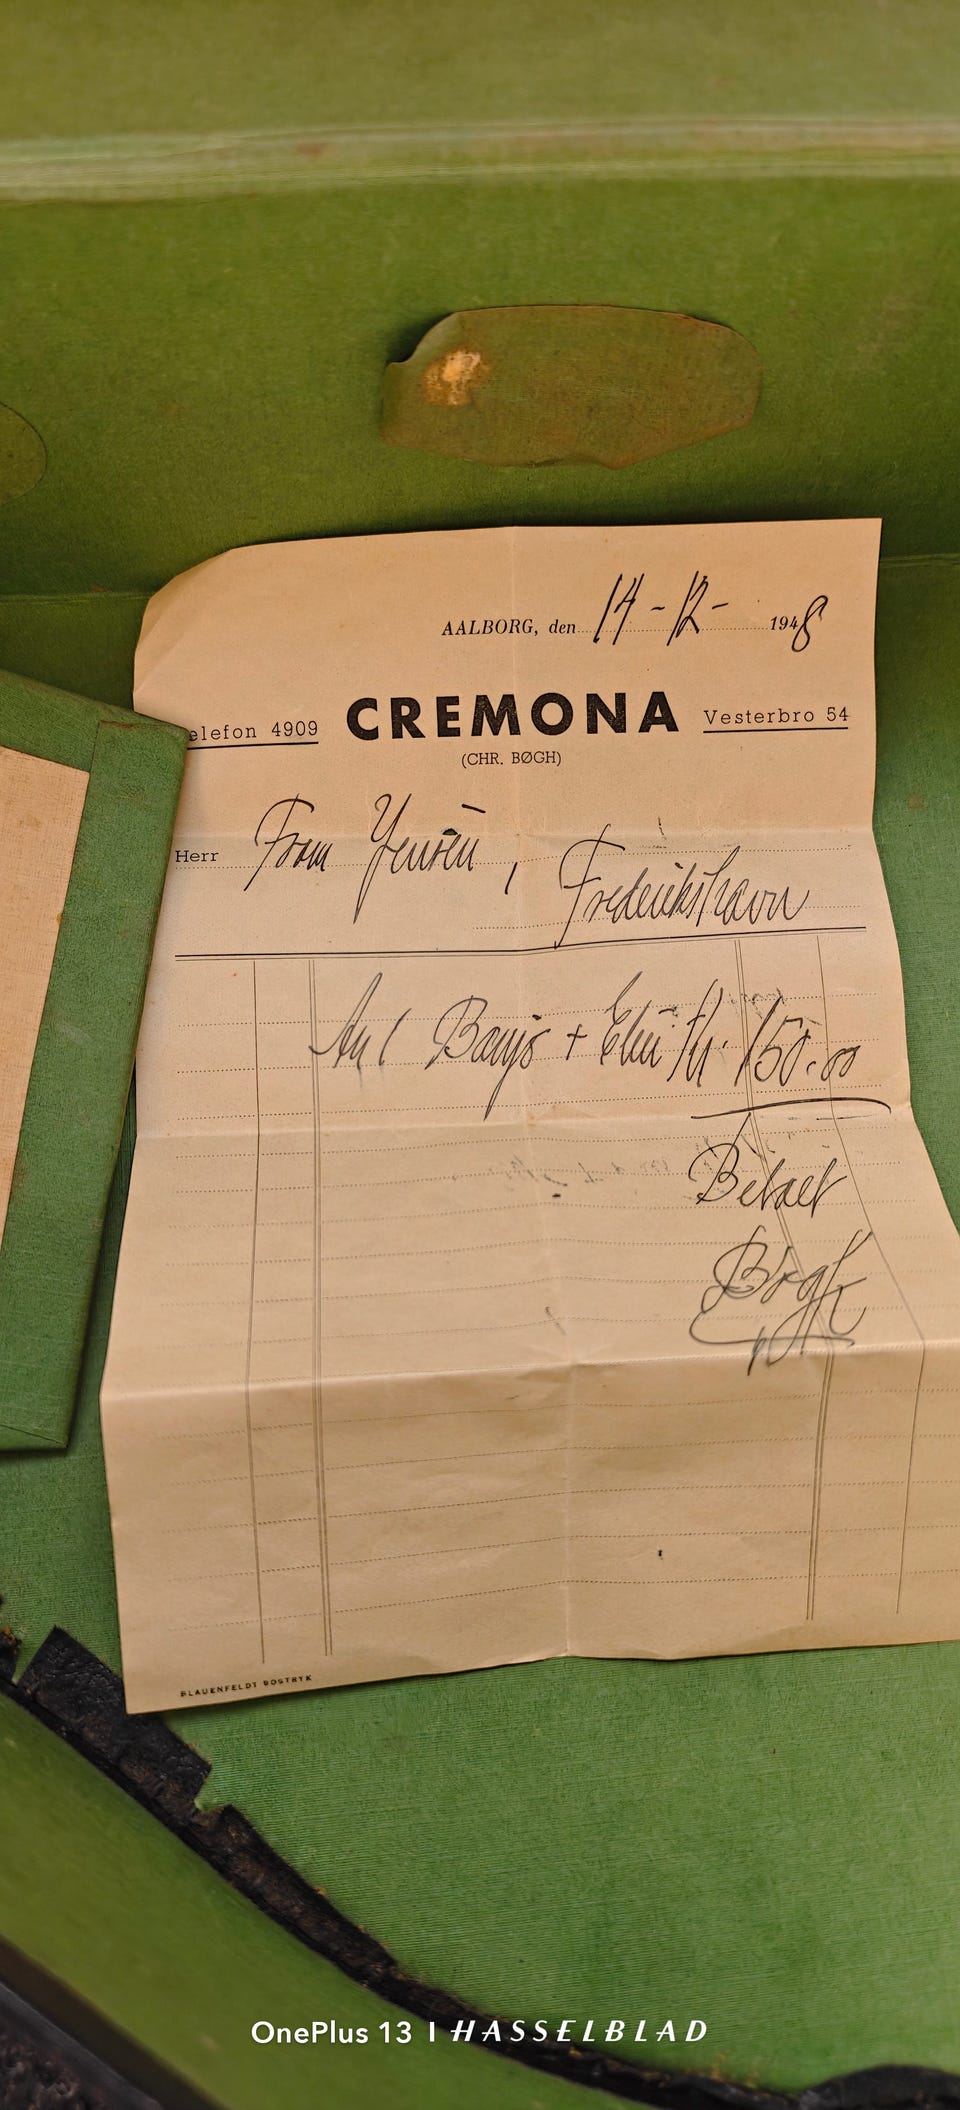 AALBORG, den 14-12- 1948
elefon 4909 CREMONA Vesterbro 54
(CHR. BØGH)
Herr From Jensen, Frederikshavn
An 1 Banjo + Etui Kr. 150.00
Betalt
Bøgh
BLAUENFELDT BOGTRYK
OnePlus 13 | HASSELBLAD